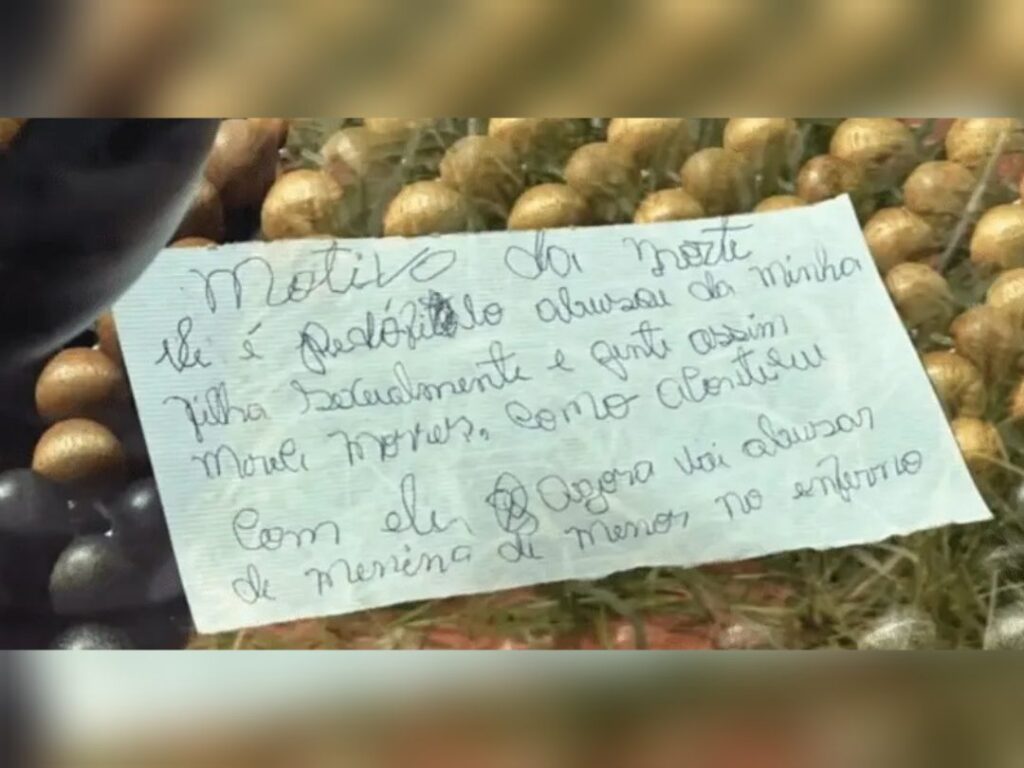 Motivo da morte
ele é pedófilo abusou da minha
filha sexualmente e gente assim
mereci morrer. como aconteceu
com ele, agora vai abusar
de menina de menor no enferno